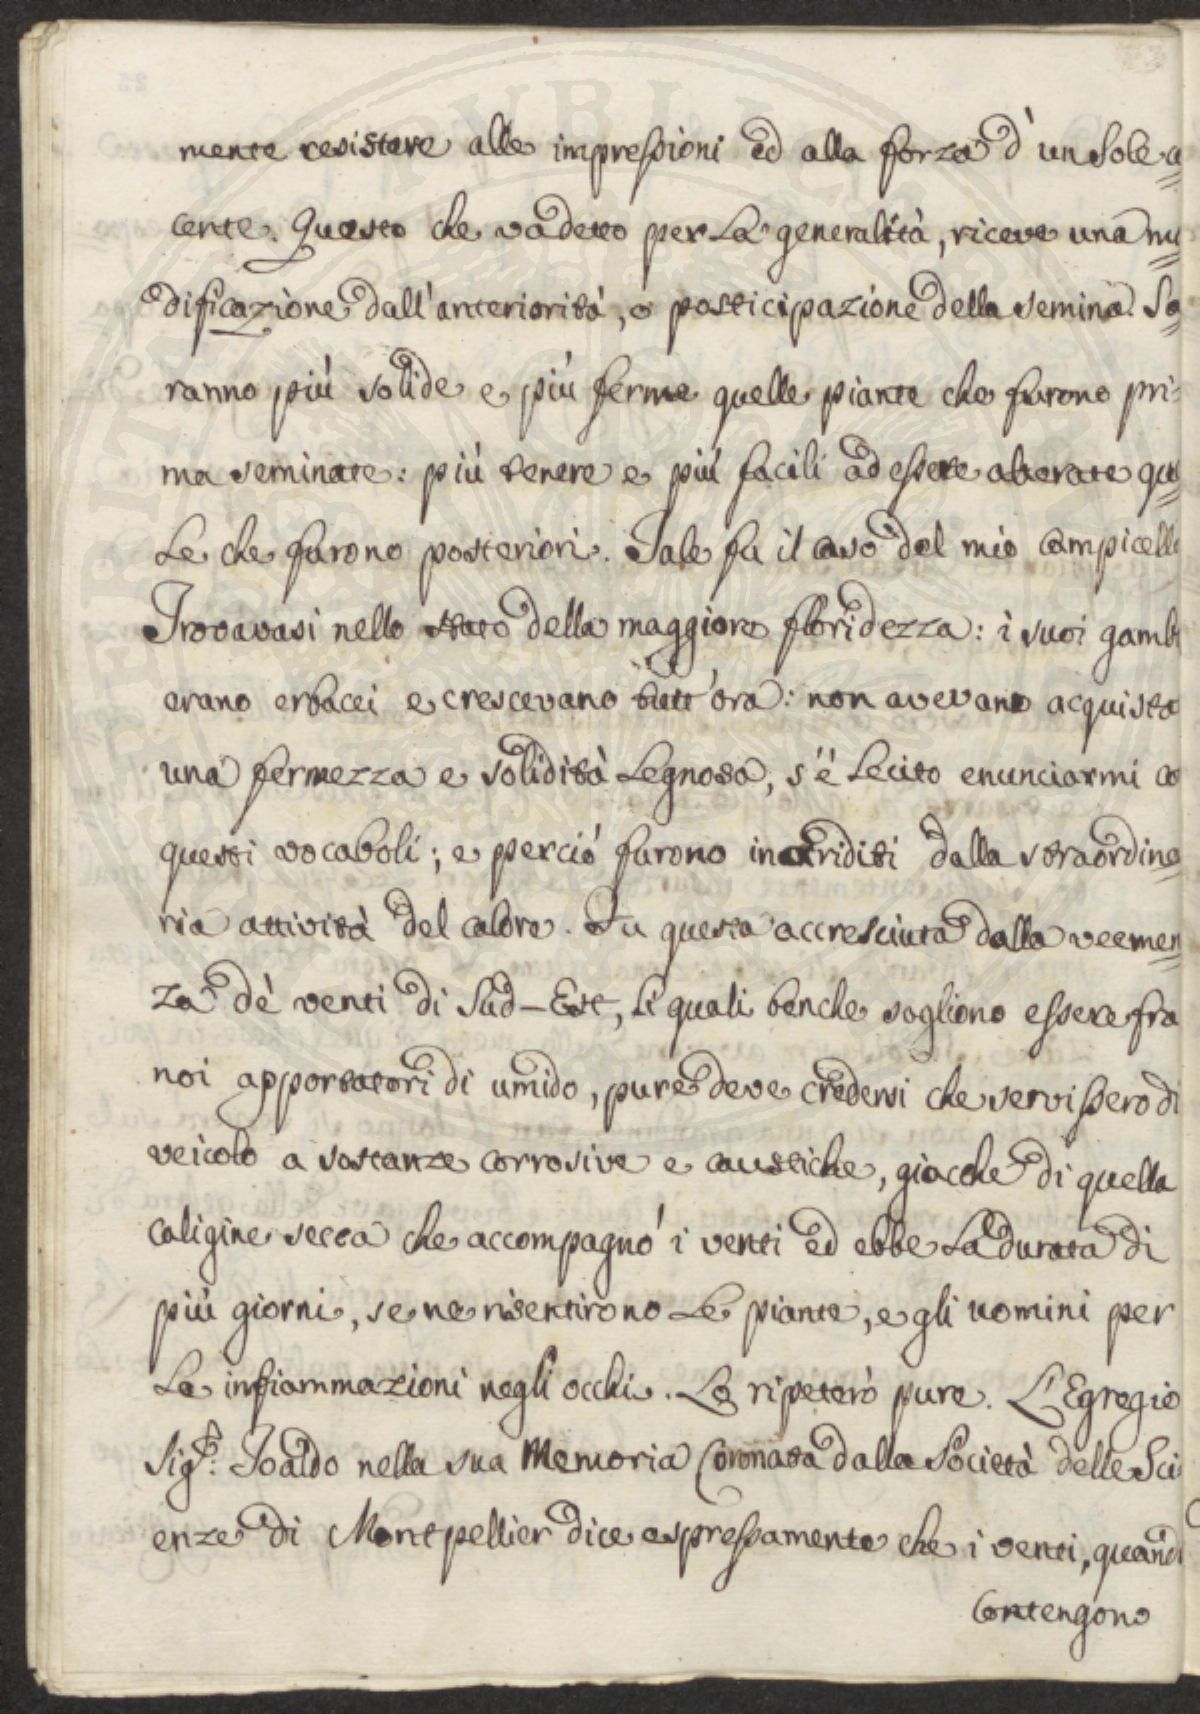 mente resistere alle impressioni ed alla forza d'un Sole a=
cente. Questo che va detto per la generalità, riceve una mo=
dificazione dall'anteriorità, o posticipazione della semina. Sa=
ranno più solide e più ferme quelle piante che furono pri=
ma seminate: più tenere e più facili ad essere alterate quel=
le che furono posteriori. Tale fu il caso del mio Campicello
Trovavasi nello stato della maggiore floridezza: i suoi gambi
erano erbacei e crescevano tutt'ora: non avevano acquistato
una fermezza e solidità legnosa, s'è lecito enunciarmi co
questi vocaboli; e perciò furono inariditi dalla straordina=
ria attività del calore. Fu questa accresciuta dalla veemen=
za de' venti di Sud-Est, li quali benche sogliono essere fra
noi apportatori di umido, pure deve credersi che servissero di
veicolo a sostanze corrosive e caustiche, giacche di quella
caligine secca che accompagnò i venti ed ebbe la durata di
più giorni, se ne risentirono le piante, e gli uomini per
le infiammazioni negli occhi. Lo ripeterò pure. L'Egregio
Sigr. Toaldo nella sua Memoria Coronata dalla Società delle Sci=
enze di Montpellier dice espressamente che i venti, quando
Contengono
PUBLICA